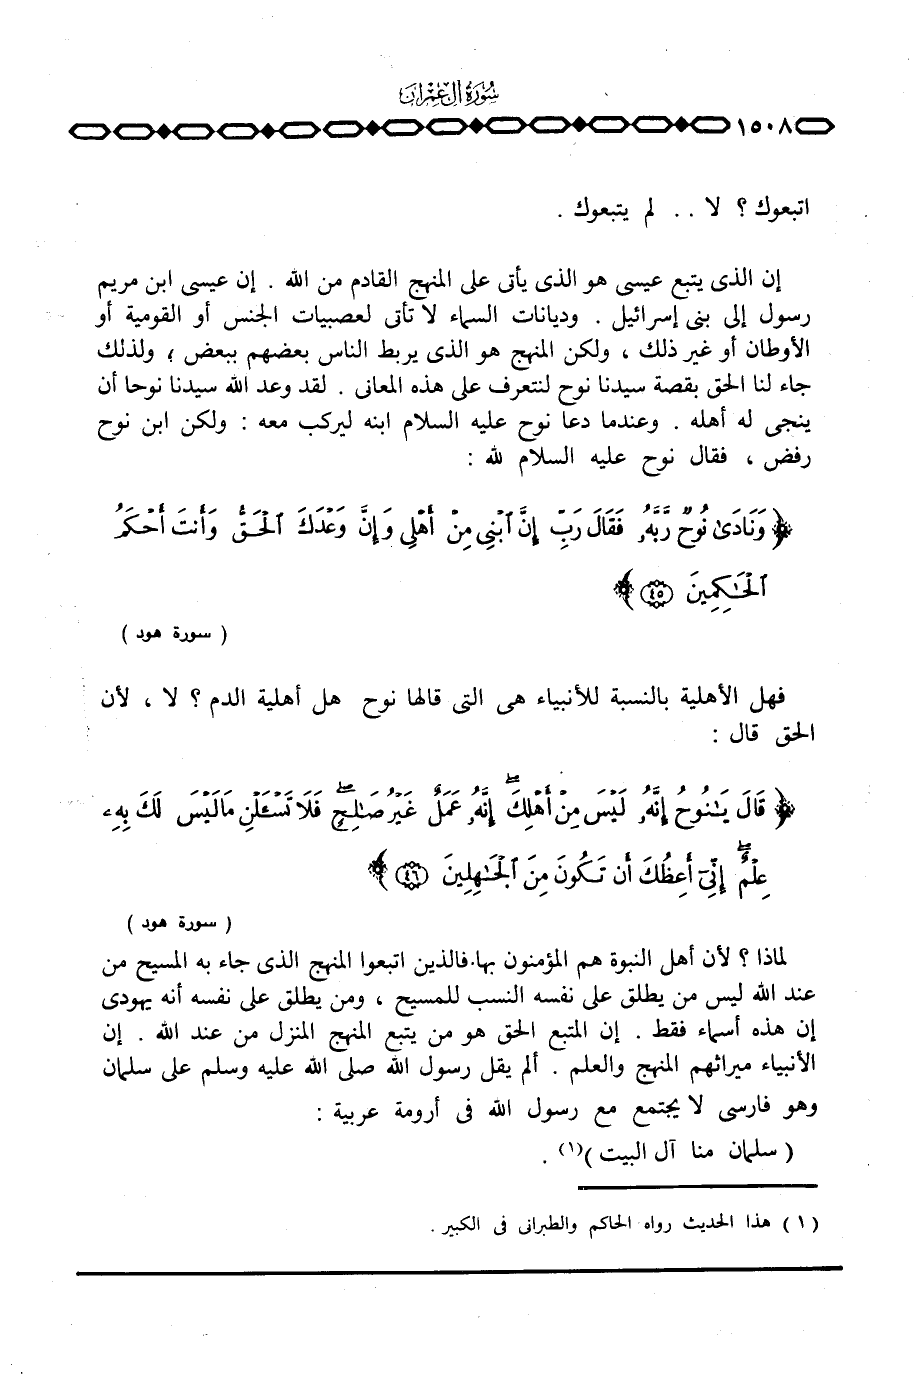 سُورَةُ آلِ عِمْرَانَ
١٥٠٨
اتبعوك ؟ لا .. لم يتبعوك .
إن الذى يتبع عيسى هو الذى يأتى على المنهج القادم من الله . إن عيسى ابن مريم
رسول إلى بنى إسرائيل . وديانات السماء لا تأتى لعصبيات الجنس أو القومية أو
الأوطان أو غير ذلك ، ولكن المنهج هو الذى يربط الناس بعضهم ببعض ؛ ولذلك
جاء لنا الحق بقصة سيدنا نوح لنتعرف على هذه المعانى . لقد وعد الله سيدنا نوحا أن
ينجى له أهله . وعندما دعا نوح عليه السلام ابنه ليركب معه : ولكن ابن نوح
رفض ، فقال نوح عليه السلام لله :
﴿ وَنَادَىٰ نُوحٌ رَّبَّهُۥ فَقَالَ رَبِّ إِنَّ ٱبْنِى مِنْ أَهْلِى وَإِنَّ وَعْدَكَ ٱلْحَقُّ وَأَنتَ أَحْكَمُ
ٱلْحَٰكِمِينَ ٤٥ ﴾
( سورة هود )
فهل الأهلية بالنسبة للأنبياء هى التى قالها نوح هل أهلية الدم ؟ لا ، لأن
الحق قال :
﴿ قَالَ يَٰنُوحُ إِنَّهُۥ لَيْسَ مِنْ أَهْلِكَ ۖ إِنَّهُۥ عَمَلٌ غَيْرُ صَٰلِحٍ ۖ فَلَا تَسْـَٔلْنِ مَا لَيْسَ لَكَ بِهِۦ
عِلْمٌ ۖ إِنِّىٓ أَعِظُكَ أَن تَكُونَ مِنَ ٱلْجَٰهِلِينَ ٤٦ ﴾
( سورة هود )
لماذا ؟ لأن أهل النبوة هم المؤمنون بها. فالذين اتبعوا المنهج الذى جاء به المسيح من
عند الله ليس من يطلق على نفسه النسب للمسيح ، ومن يطلق على نفسه أنه يهودى
إن هذه أسماء فقط . إن المتبع الحق هو من يتبع المنهج المنزل من عند الله . إن
الأنبياء ميراثهم المنهج والعلم . ألم يقل رسول الله صلى الله عليه وسلم على سلمان
وهو فارسى لا يجتمع مع رسول الله فى أرومة عربية :
( سلمان منا آل البيت )(١) .
( ١ ) هذا الحديث رواه الحاكم والطبرانى فى الكبير .